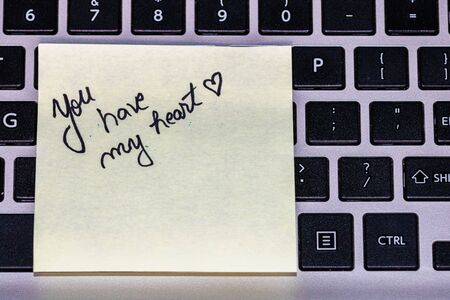 ^ & * ( ) _ +
6 7 8 9 0 -
You
have
my heart ♡
P
G
: "
; '
EN
> ?
. /
SHI
CTRL